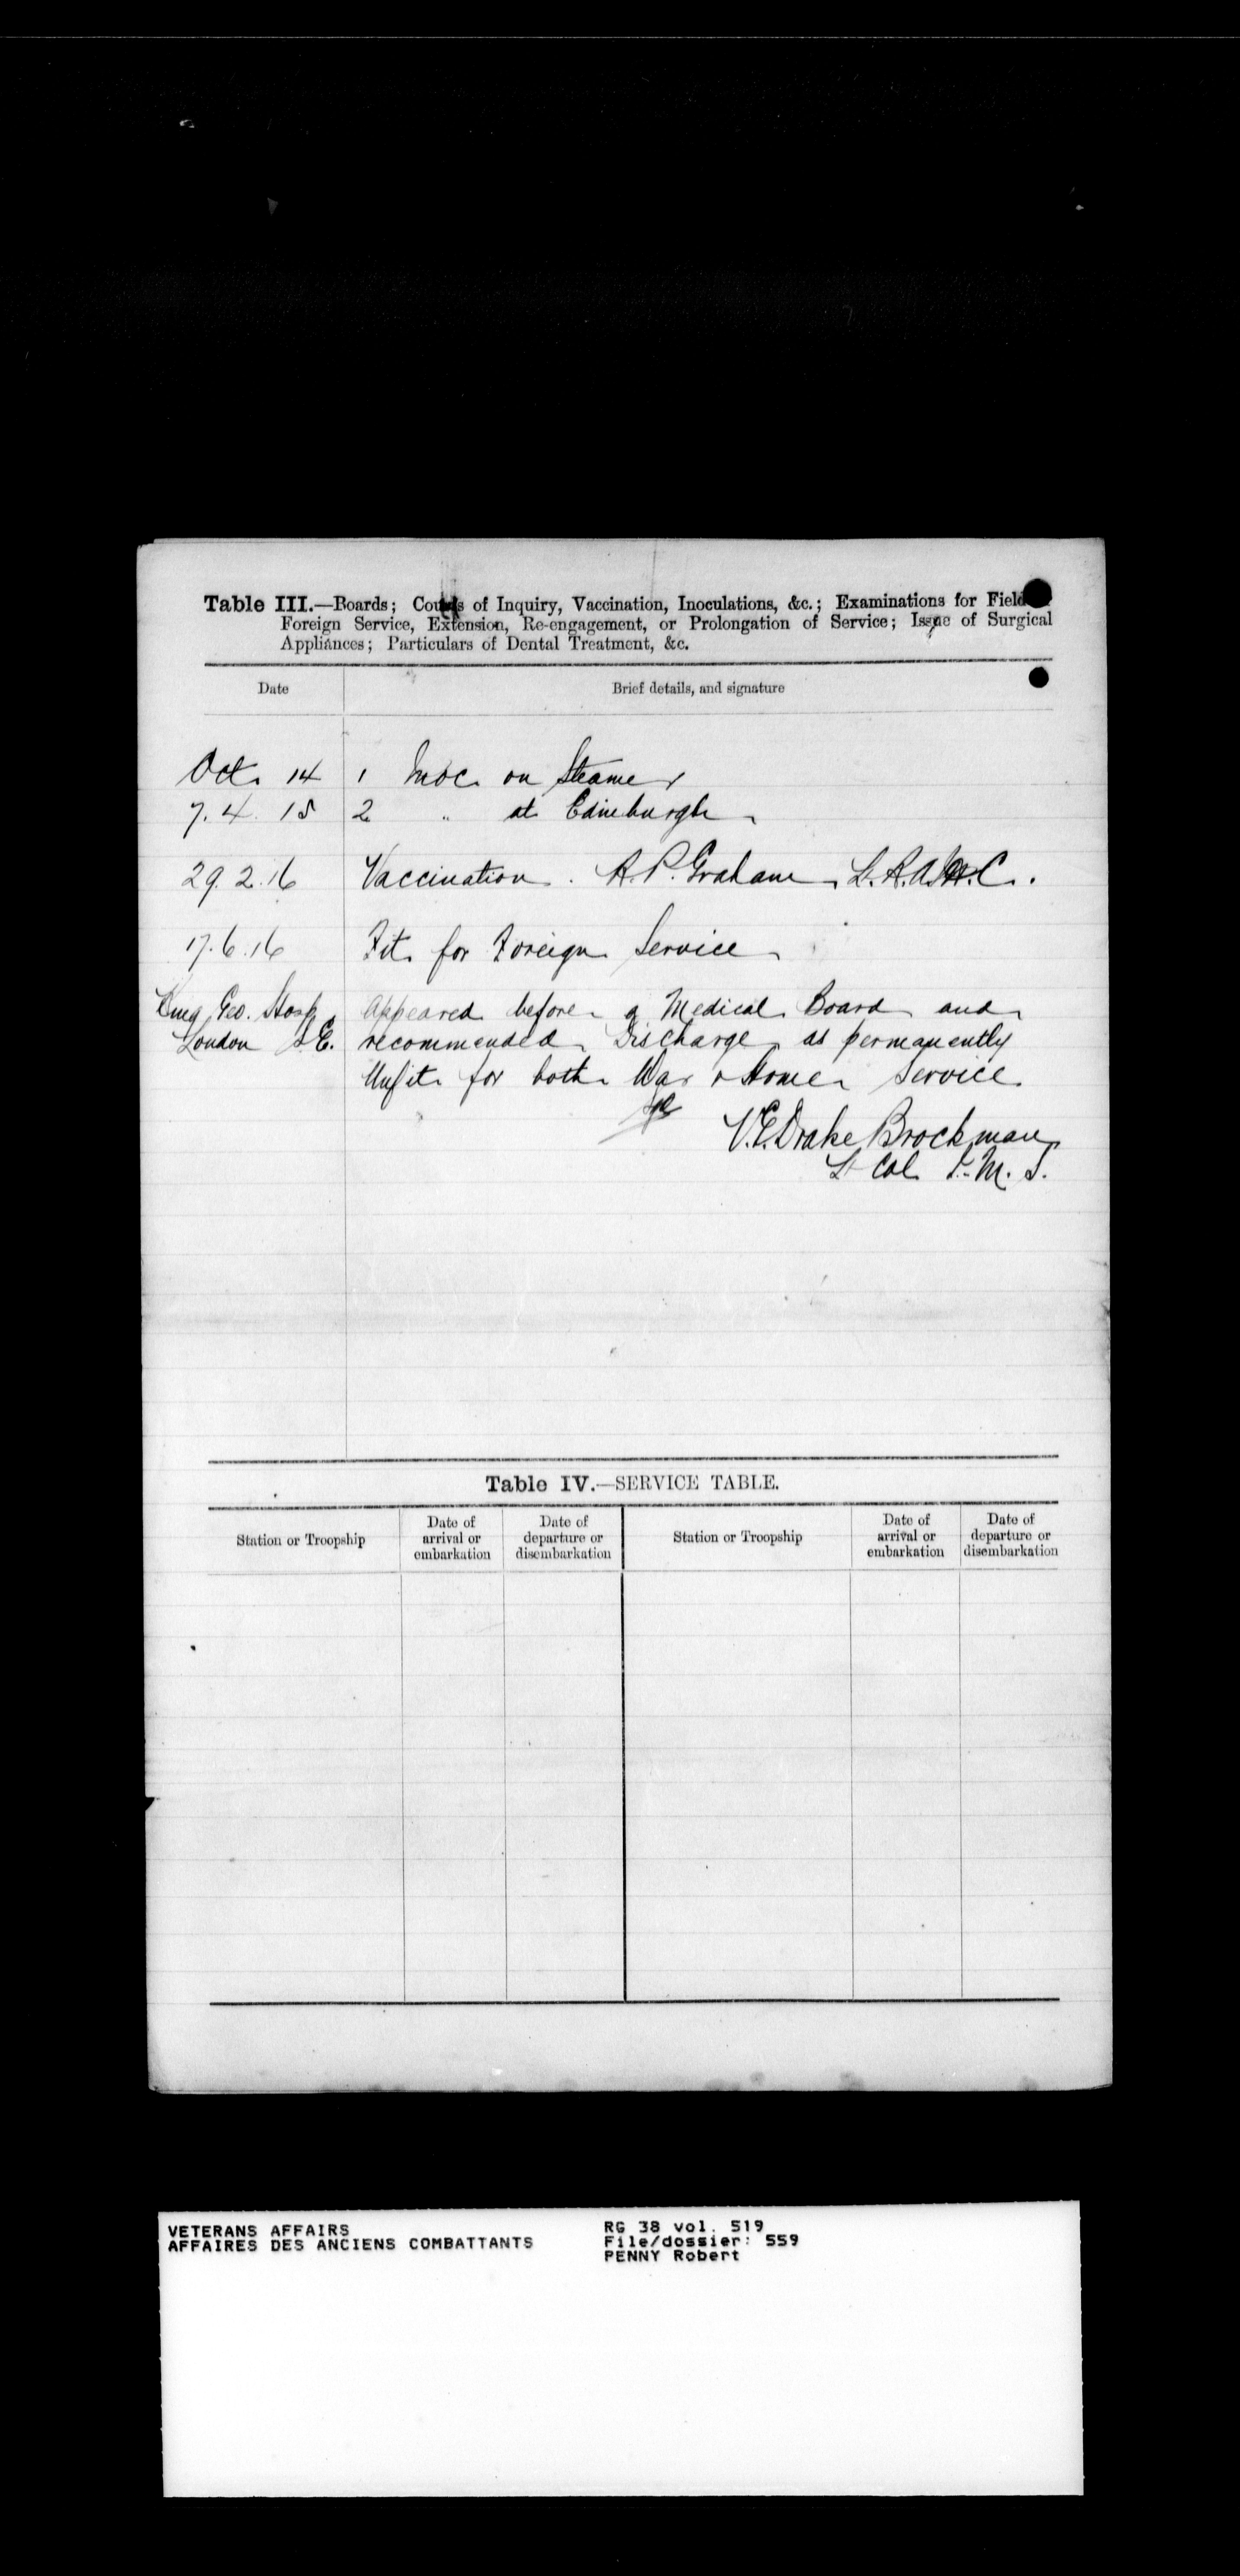 Table III.—Boards; Courts of Inquiry, Vaccination, Inoculations, &c.; Examinations for Field or
Foreign Service, Extension, Re-engagement, or Prolongation of Service; Issue of Surgical
Appliances; Particulars of Dental Treatment, &c.
Date Brief details, and signature
Oct. 14 1 Inoc. on Steamer
7.4.15 2 " at Edinburgh
29.2.16 Vaccination. A.P. Graham Lt. R.A.M.C.
17.6.16 Fit for Foreign Service
King Geo. Hosp. Appeared before a Medical Board and
London S.E. recommended Discharge as permanently
Unfit for both War & Home Service.
V.E. Drake Brockman
Lt Col I.M.S.
Table IV.—SERVICE TABLE.
Station or Troopship Date of arrival or embarkation Date of departure or disembarkation Station or Troopship Date of arrival or embarkation Date of departure or disembarkation
VETERANS AFFAIRS RG 38 vol. 519
AFFAIRES DES ANCIENS COMBATTANTS File/dossier: 559
PENNY Robert